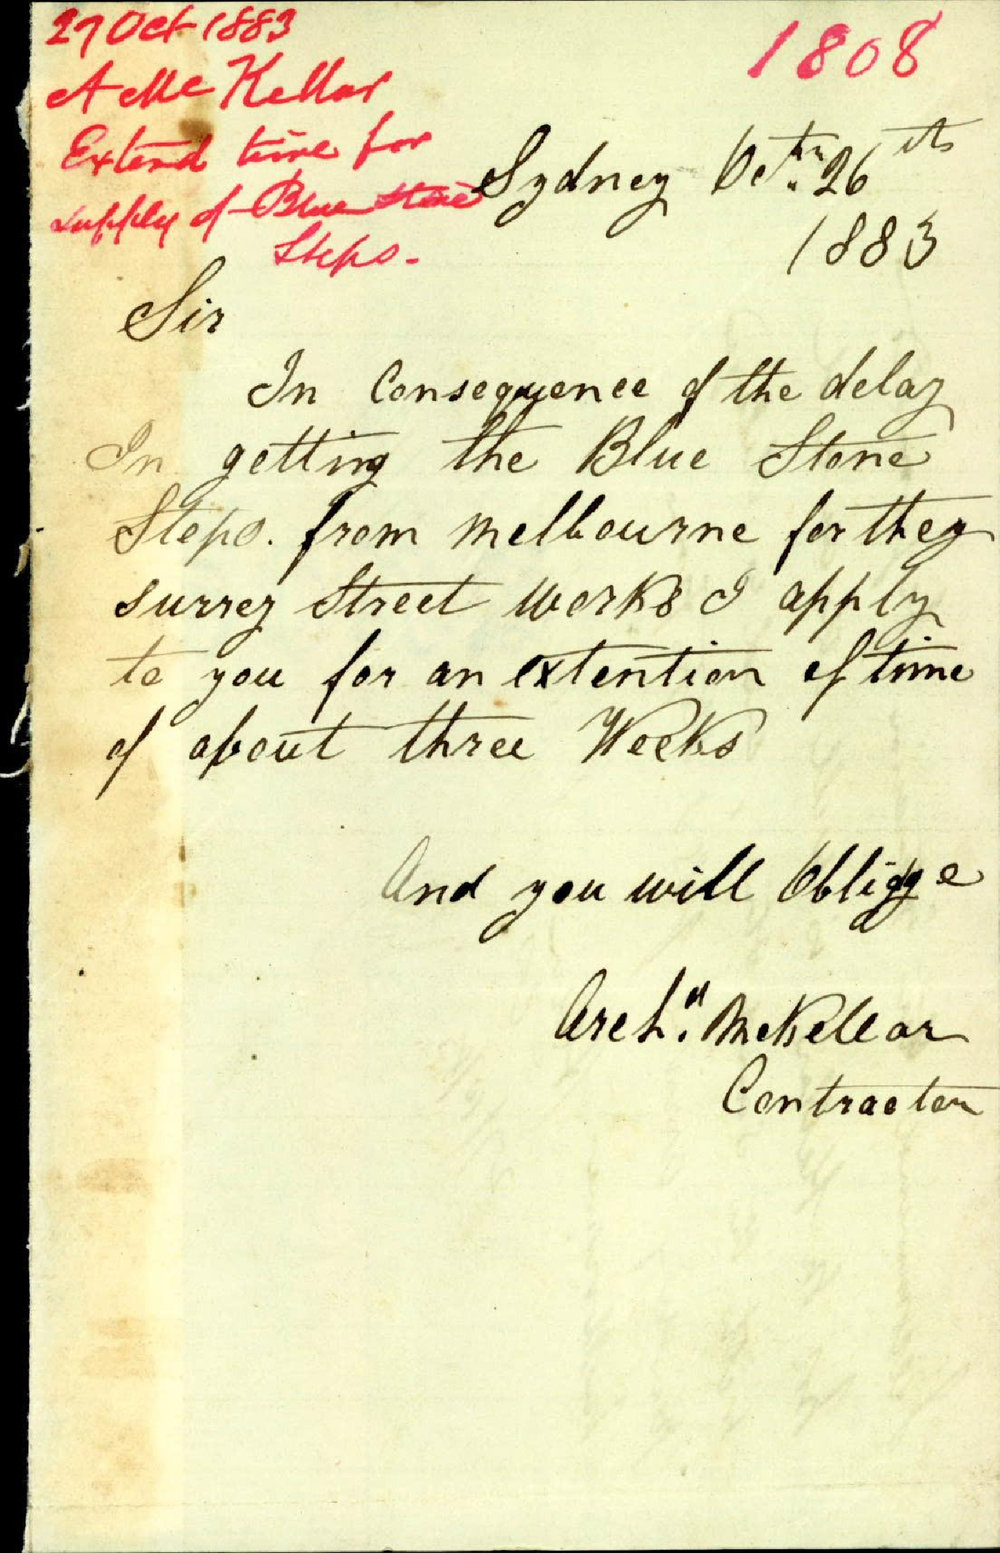 27 Oct 1883
A McKellar
Extend time for
supply of Blue stone
Steps.
1808
Sydney Octr. 26th
1883
Sir
In Consequence of the delay
In getting the Blue Stone
Steps. from melbourne for they
surrey Street works I apply
to you for an extention of time
of about three Weeks
And you will Obligge
Archd. McKellar
Contractor